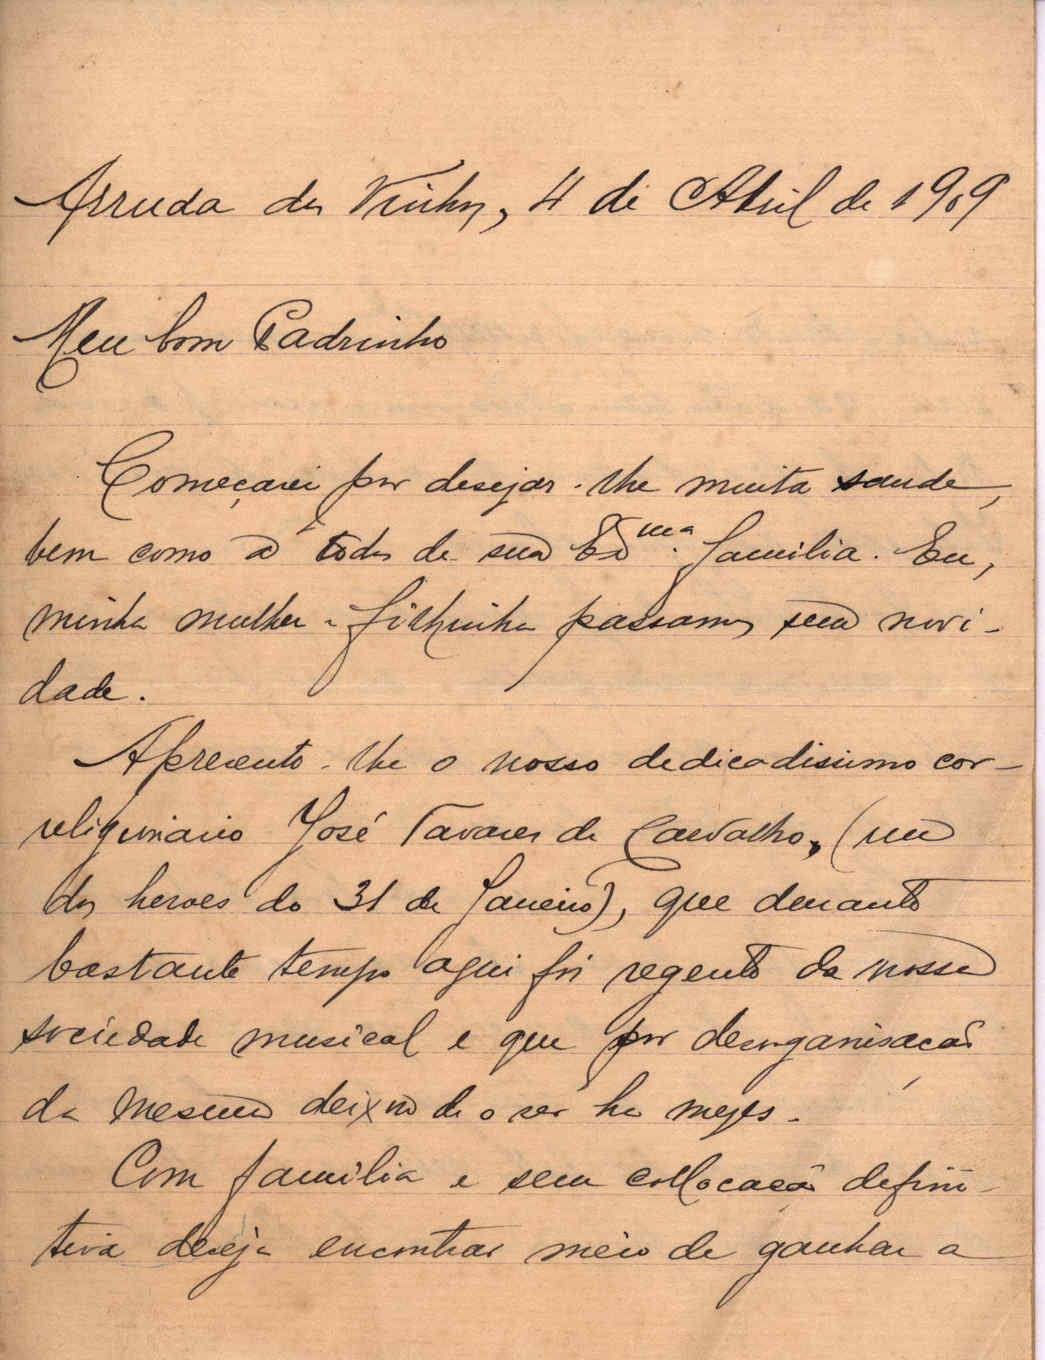 Arruda dos Vinhos, 4 de Abril de 1909
Meu bom Padrinho
Começarei por desejar-lhe muita saude,
bem como a todos de sua Exma. familia. Eu,
minha mulher e filhinha passamos sem novi-
dade.
Apresento-lhe o nosso dedicadissimo cor-
religionario José Tavares de Carvalho, (um
dos heroes do 31 de Janeiro), que durante
bastante tempo aqui foi regente da nossa
sociedade musical e que por desorganisação
da mesma deixou de o ser ha mezes.
Com familia e sem collocação defini-
tiva deseja encontrar meio de ganhar a